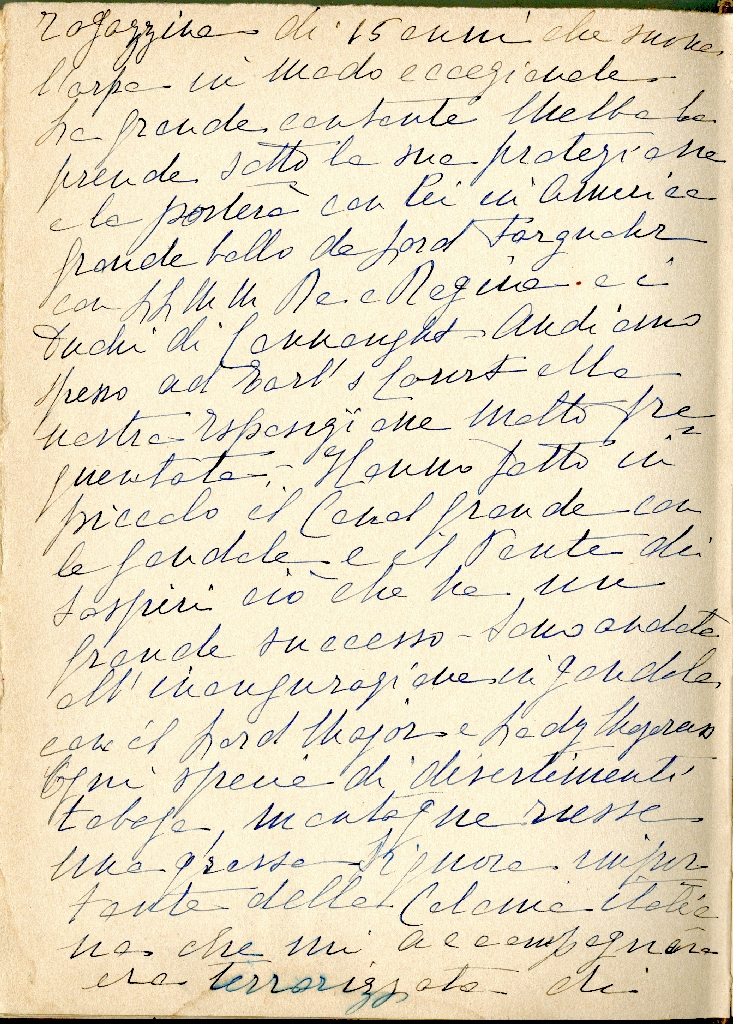 ragazzina di 15 anni che suona
l'arpa in modo eccezionale
La grande cantante Melba la
prende sotto la sua protezione
e la porterà con lei in America
grande ballo da Lord Farquhar
con LL MM Re e Regina e i
Duchi di Connaught - Andiamo
spesso ad Earl's Court alla
nostra Esposizione molto fre=
quentata,- Hanno fatto in
piccolo il Canal grande con
le gondole e il Ponte dei
sospiri ciò che ha un
grande successo - Sono andata
all'inaugurazione in gondola
con il Lord Major e Lady Mayoress
Ogni specie di divertimenti
toboga, montagne russe
una grossa Signora impor
tante della Colonia italia
na che mi accompagnava
era terrorizzata di